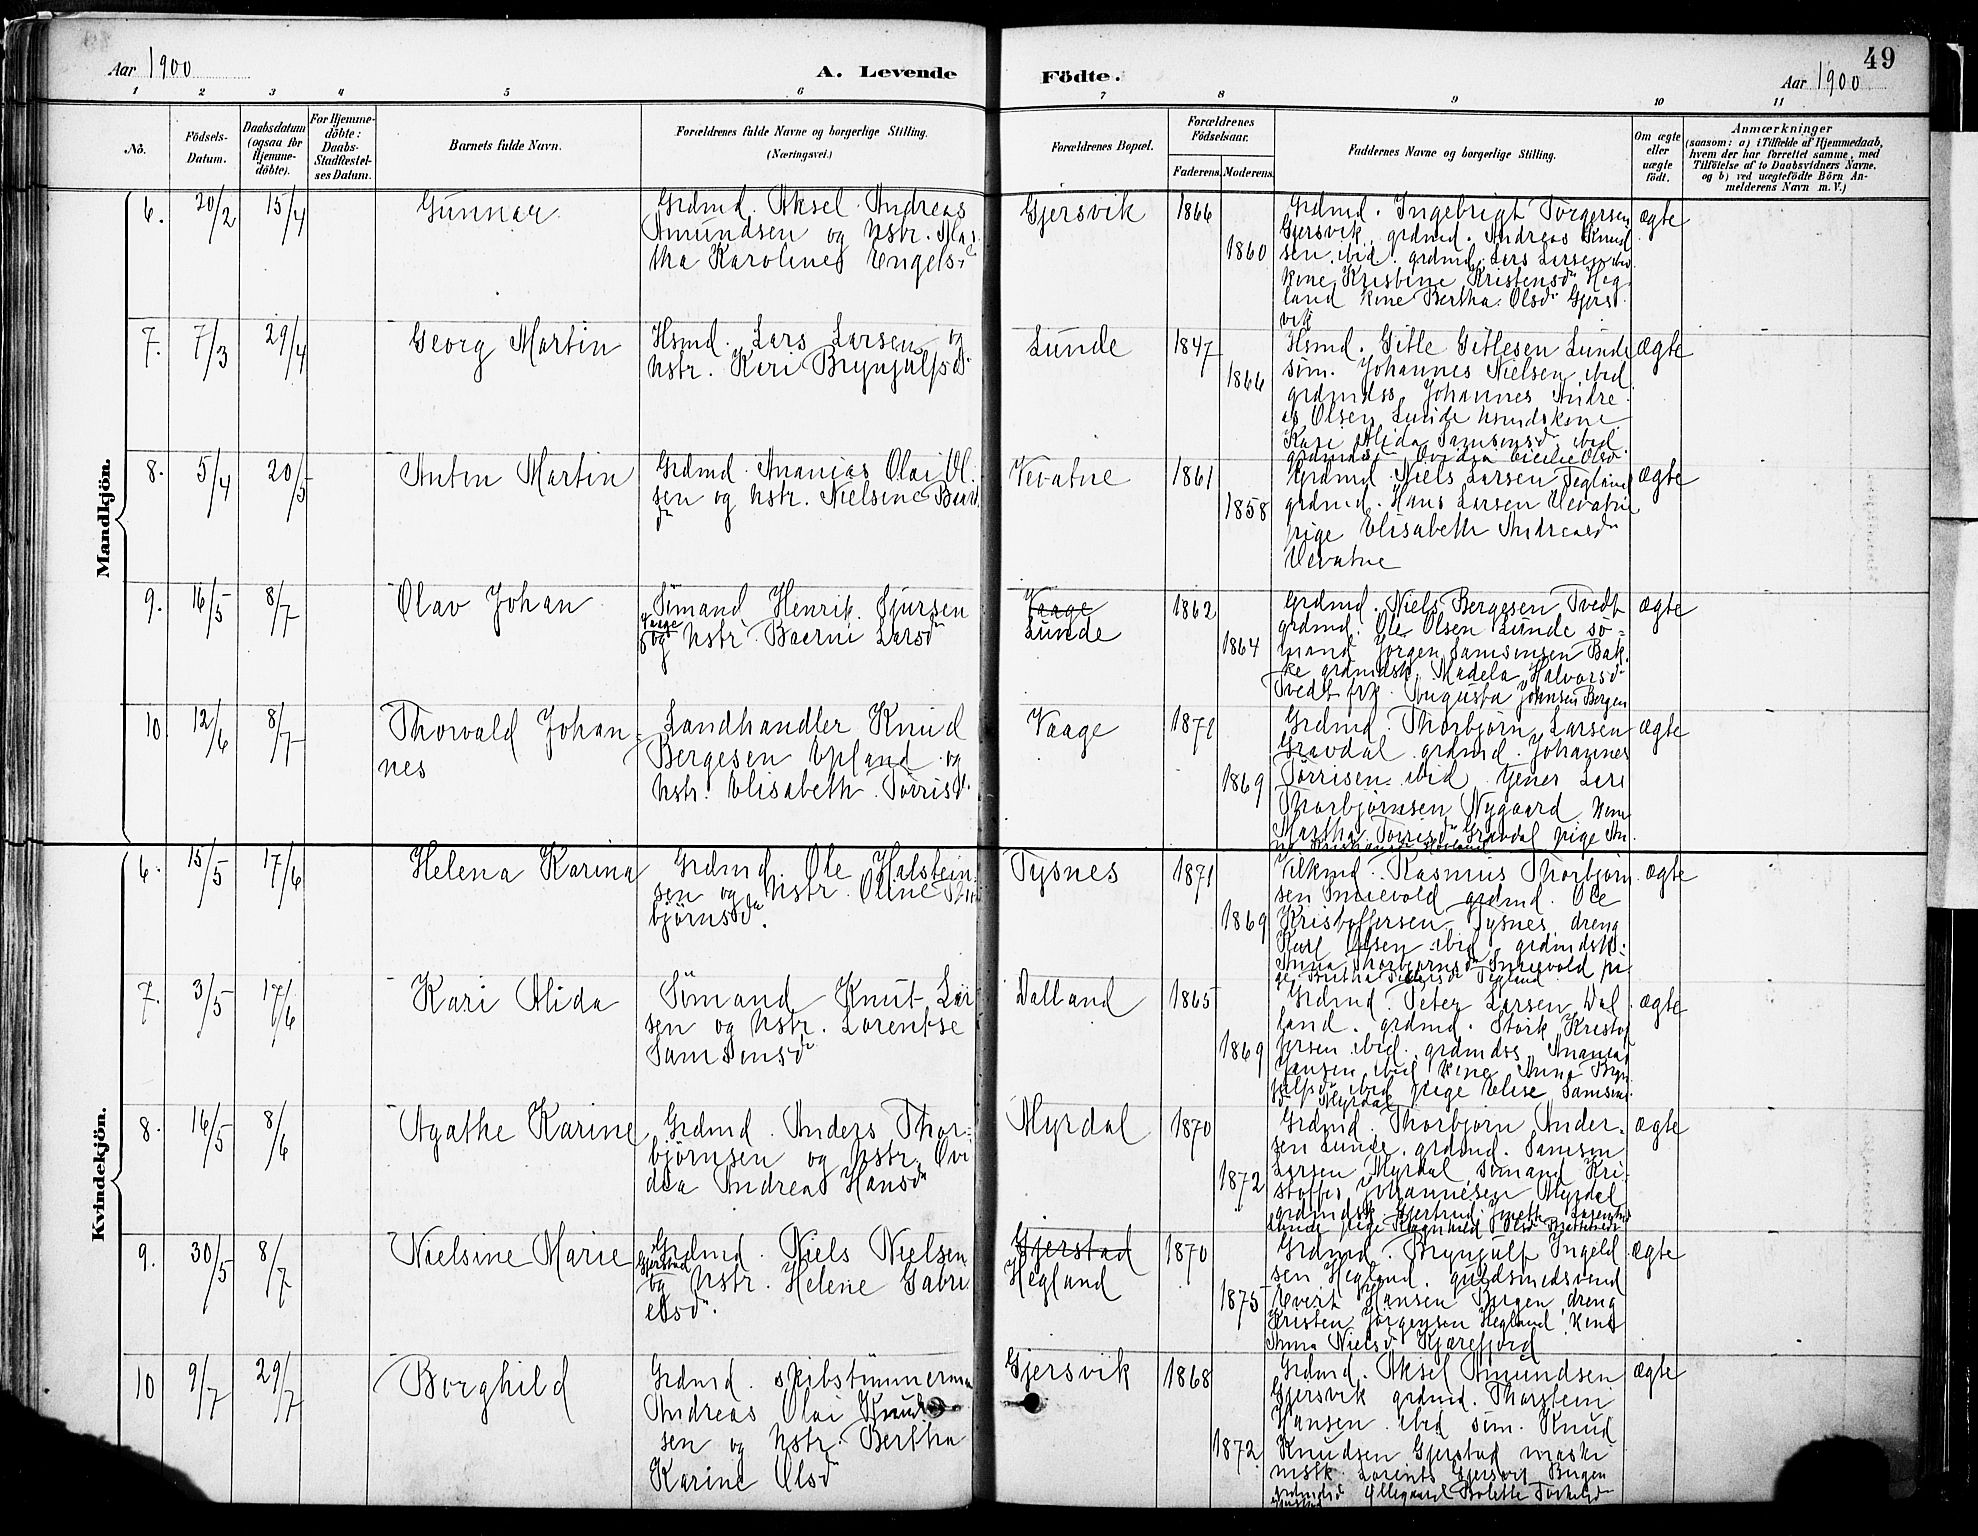 Aar 1900
A. Levende
Födte.
49
Aar 1900
1 2 3 4 5 6 7 8 9 10 11
No.
Födsels-
Datum.
Daabsdatum
(ogsaa for
Hjemme-
döbte).
For Hjemme-
döbte:
Daabs-
Stadfæstel-
ses Datum.
Barnets fulde Navn.
Forældrenes fulde Navne og borgerlige Stilling.
(Næringsvei.)
Forældrenes Bopæl.
Forældrenes
Födselsaar.
Faderens. Moderens.
Faddernes Navne og borgerlige Stilling.
Om ægte
eller
uægte
født.
Anmærkninger
(saasom: a) i Tilfælde af Hjemmedaab,
hvem der har forrettet samme, med
Tilföielse af to Daabsvidners Navne.
og b) ved uægtefödte Börn An-
melderens Navn m. V.)
Mandkjön.
6. 20/2 15/4 Gunnar
Grdmd. Aksel Andreas
Amundsen og hstr. Mar
tha Karoline Engelsd
Gjersvik 1866 1860
Grdmd. Ingebrigt Torgersen
Gjersvik, grdmd. Andreas Knud
sen ibid. grdmd. Lars Larsen ibid
kone Kristine Kristensdr Heg
land kone Bertha Olsdr Gjers
vik
ægte
7. 7/3 29/4 Georg Martin
Hsmd. Lars Larsen og
hstr. Kari Brynjulfsd
Lunde 1847 1866
Hsmd. Gitle Gitlesen Lunde
søm. Johannes Nielsen ibid
grdmdss. Johannes Andre
as Olsen Lunde hsmdskone
Kari Alida Samsonsd. ibid
Ægte
8. 5/4 20/5 Anton Martin
Grdmd. Ananias Olai Ol
sen og hstr. Nielsine Baard
dr
Vevatne 1861 1858
Grdmd. Niels Larsen Tegland
grdmd. Hans Larsen Vevatne
pige Elisabeth Andreasdr
Vevatne
Ægte
9. 16/5 8/7 Olav Johan
Sømand Henrik Sjursen
Vaage
og hstr. Baerni Larsd
Vaage
Lunde 1862 1864
Grdmd. Niels Bergesen Tvedt
grdmd. Ole Olsen Lunde sø-
mand Jørgen Samsonsen Bak
ke grdmdsk. Madela Halvorsd
Tvedt frk. Augusta Johnsen Bergen
ægte
10 12/6 8/7 Thorvald Johan-
nes
Landhandler Knud
Bergesen Opland og
hstr. Elisabeth Tørrisd.
Vaage 1871 1869
Grdmd. Thorbjørn Larsen
Gravdal grdmd. Johannes
Tørrisen ibid. tjener Lars
Thorbjørnsen Nygaard kone
Martha Tørrisdr Gravdal pige An
ægte
Kvindekjön.
6. 15/5 17/6 Helena Karina
Grdmd. Ole Halstein
sen og hstr. Oline Thor
bjørnsdr.
Tysnes 1871 1869
Vilkmd. Rasmus Thorbjørn
sen Innevold grdmd. Ole
Kristoffersen Tysnes dreng
Karl Olsen ibid. grdmdsk.
Anna Thorbjørnsdr Innevold pi
ægte
7. 3/5 17/6 Kari Alida
Sømand Knut Lar
sen og hstr. Lorentse
Samsonsdr
Dalland 1865 1869
Grdmd. Peter Larsen Dal
land. grdmd. Størk Kristof
fersen ibid. grdmdss. Ananias
Jansen ibid kone Anna Bryn
julfsdr ibid pige Elise Samsons
dr Myrdal
ægte
8. 16/5 8/6 Agathe Karine
Grdmd. Anders Thor-
bjørnsen og hstr. Ovi
dia Andrea Hansdr
Myrdal 1870 1872
Grdmd. Thorbjørn Ander-
sen Lunde. grdmd. Samson
Larsen Myrdal sømand Kri-
stoffer Johannesen Myrdal
ægte
9. 30/5 8/7 Nielsine Marie
Grdmd. Niels Nielsen
Gjerstad
og hstr. Helene Gabri
elsdr.
Gjerstad
Hegland 1870 1875
Grdmd. Brynjulf Ingeld
sen Hegland. guldsmedsvend
Evert Hansen Bergen dreng
Kristen Jørgensen Hegland kone
Anna Nielsdr Kjærefjord
ægte
10 9/7 29/7 Borghild
Grdmd. skibstømmerma
Andreas Olai Knud
sen og hstr. Bertha
Karine Olsdr
Gjersvik 1868 1872
Grdmd. Aksel Amundsen
Gjersvik grdmd. Thorstein
Hansen ibid søm. Knud
Knudsen Gjerstad maski
nistk. Lorents Gjersvik Bergen
ægte